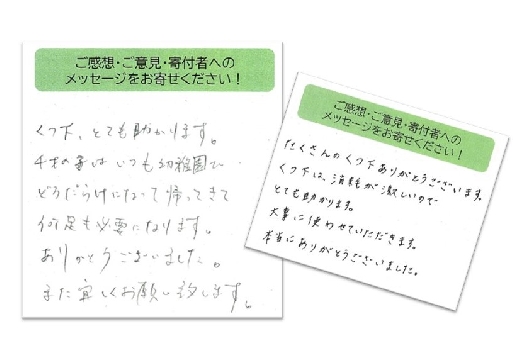 ご感想・ご意見・寄付者への
メッセージをお寄せください！
くつ下、とても助かります。
4才の子はいつも幼稚園で
どろだらけになって帰ってきて
何足も必要になります。
ありがとうございました。
また宜しくお願い致します。
ご感想・ご意見・寄付者への
メッセージをお寄せください！
たくさんのくつ下ありがとうございます。
くつ下は、消耗が激しいので
とても助かります。
大事に使わせていただきます。
本当にありがとうございました。